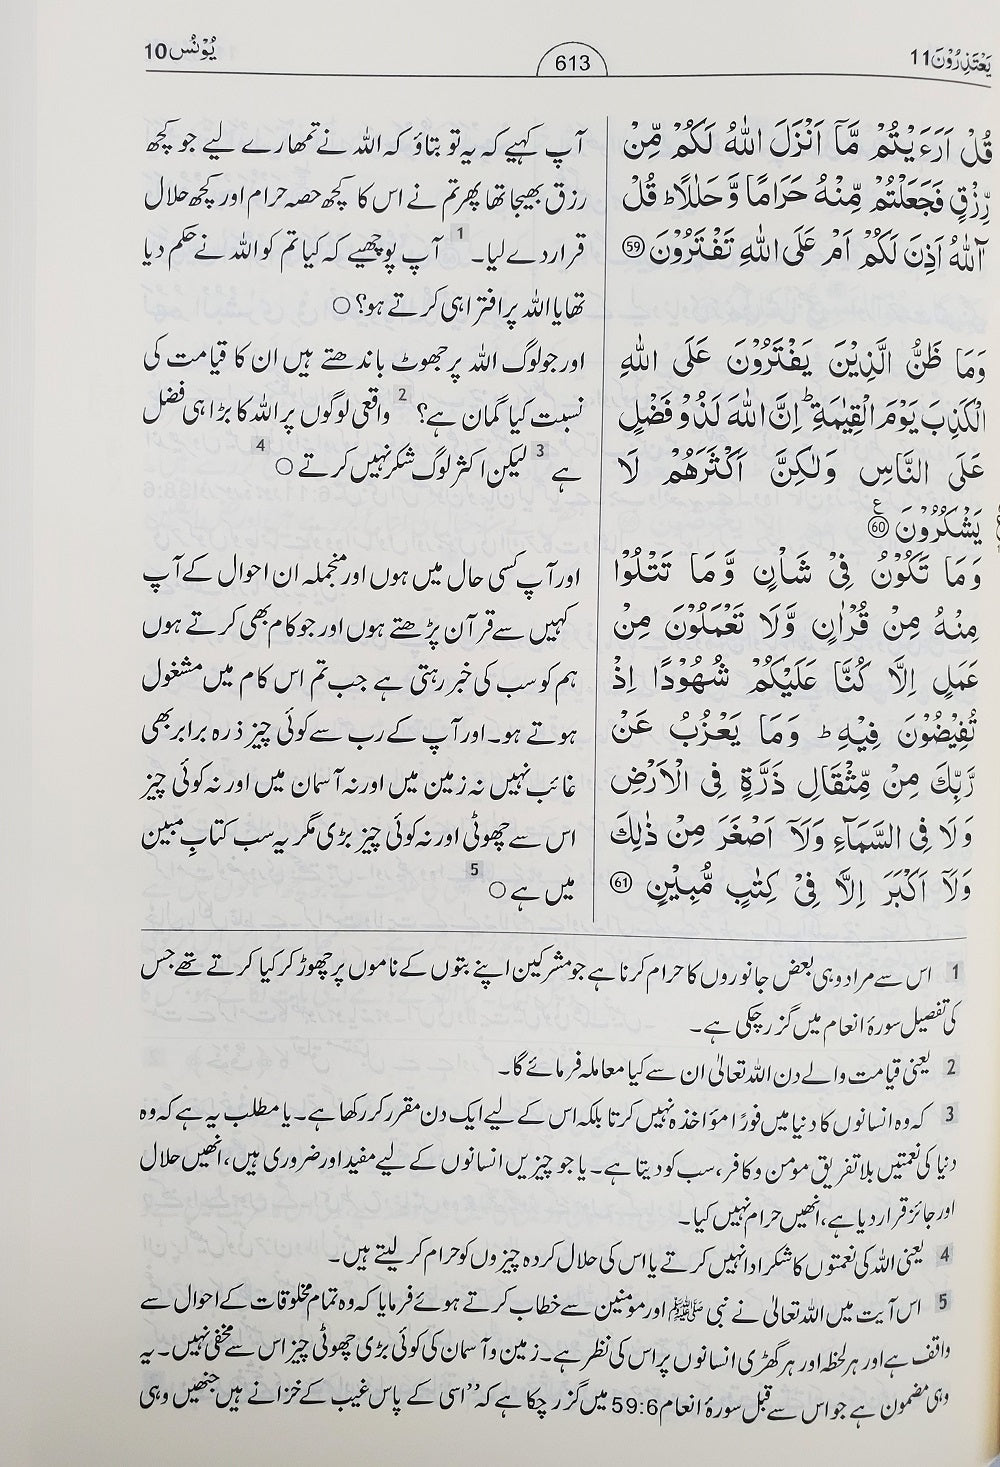 یَعْتَذِرُوْنَ 11
613
یُوْنُس 10
قُلْ اَرَءَیْتُمْ مَّاۤ اَنْزَلَ اللّٰهُ لَكُمْ مِّنْ
رِّزْقٍ فَجَعَلْتُمْ مِّنْهُ حَرَامًا وَّ حَلٰلًا ؕ قُلْ
آٰللّٰهُ اَذِنَ لَكُمْ اَمْ عَلَی اللّٰهِ تَفْتَرُوْنَ ﴿59﴾
وَمَا ظَنُّ الَّذِیْنَ یَفْتَرُوْنَ عَلَی اللّٰهِ
الْكَذِبَ یَوْمَ الْقِیٰمَةِ ؕ اِنَّ اللّٰهَ لَذُوْ فَضْلٍ
عَلَی النَّاسِ وَلٰكِنَّ اَكْثَرَهُمْ لَا
یَشْكُرُوْنَ ﴿60﴾ ع
وَمَا تَكُوْنُ فِیْ شَاْنٍ وَّمَا تَتْلُوْا
مِنْهُ مِنْ قُرْاٰنٍ وَّلَا تَعْمَلُوْنَ مِنْ
عَمَلٍ اِلَّا كُنَّا عَلَیْكُمْ شُهُوْدًا اِذْ
تُفِیْضُوْنَ فِیْهِ ؕ وَمَا یَعْزُبُ عَنْ
رَّبِّكَ مِنْ مِّثْقَالِ ذَرَّةٍ فِی الْاَرْضِ
وَلَا فِی السَّمَآءِ وَلَاۤ اَصْغَرَ مِنْ ذٰلِكَ
وَلَاۤ اَكْبَرَ اِلَّا فِیْ كِتٰبٍ مُّبِیْنٍ ﴿61﴾
آپ کہیے کہ یہ تو بتاؤ کہ اللہ نے تمھارے لیے جو کچھ
رزق بھیجا تھا پھر تم نے اس کا کچھ حصہ حرام اور کچھ حلال
قرار دے لیا۔ 1 آپ پوچھیے کہ کیا تم کو اللہ نے حکم دیا
تھا یا اللہ پر افترا ہی کرتے ہو؟ ○
اور جو لوگ اللہ پر جھوٹ باندھتے ہیں ان کا قیامت کی
نسبت کیا گمان ہے؟ 2 واقعی لوگوں پر اللہ کا بڑا ہی فضل
ہے 3 لیکن اکثر لوگ شکر نہیں کرتے ○ 4
اور آپ کسی حال میں ہوں اور منجملہ ان احوال کے آپ
کہیں سے قرآن پڑھتے ہوں اور جو کام بھی کرتے ہوں
ہم کو سب کی خبر رہتی ہے جب تم اس کام میں مشغول
ہوتے ہو۔ اور آپ کے رب سے کوئی چیز ذرہ برابر بھی
غائب نہیں نہ زمین میں اور نہ آسمان میں اور نہ کوئی چیز
اس سے چھوٹی اور نہ کوئی چیز بڑی مگر یہ سب کتابِ مبین
میں ہے ○ 5
1 اس سے مراد وہی بعض جانوروں کا حرام کرنا ہے جو مشرکین اپنے بتوں کے ناموں پر چھوڑ کر کیا کرتے تھے جس
کی تفصیل سورۂ انعام میں گزر چکی ہے۔
2 یعنی قیامت والے دن اللہ تعالیٰ ان سے کیا معاملہ فرمائے گا۔
3 کہ وہ انسانوں کا دنیا میں فورًا مؤاخذہ نہیں کرتا بلکہ اس کے لیے ایک دن مقرر کر رکھا ہے۔ یا مطلب یہ ہے کہ وہ
دنیا کی نعمتیں بلا تفریق مومن و کافر، سب کو دیتا ہے۔ یا جو چیزیں انسانوں کے لیے مفید اور ضروری ہیں، انھیں حلال
اور جائز قرار دیا ہے، انھیں حرام نہیں کیا۔
4 یعنی اللہ کی نعمتوں کا شکر ادا نہیں کرتے یا اس کی حلال کردہ چیزوں کو حرام کر لیتے ہیں۔
5 اس آیت میں اللہ تعالیٰ نے نبی ﷺ اور مومنین سے خطاب کرتے ہوئے فرمایا کہ وہ تمام مخلوقات کے احوال سے
واقف ہے اور ہر لحظہ اور ہر گھڑی انسانوں پر اس کی نظر ہے۔ زمین و آسمان کی کوئی بڑی چھوٹی چیز اس سے مخفی نہیں۔ یہ
وہی مضمون ہے جو اس سے قبل سورۂ انعام 59:6 میں گزر چکا ہے کہ ”اسی کے پاس غیب کے خزانے ہیں جنھیں وہی